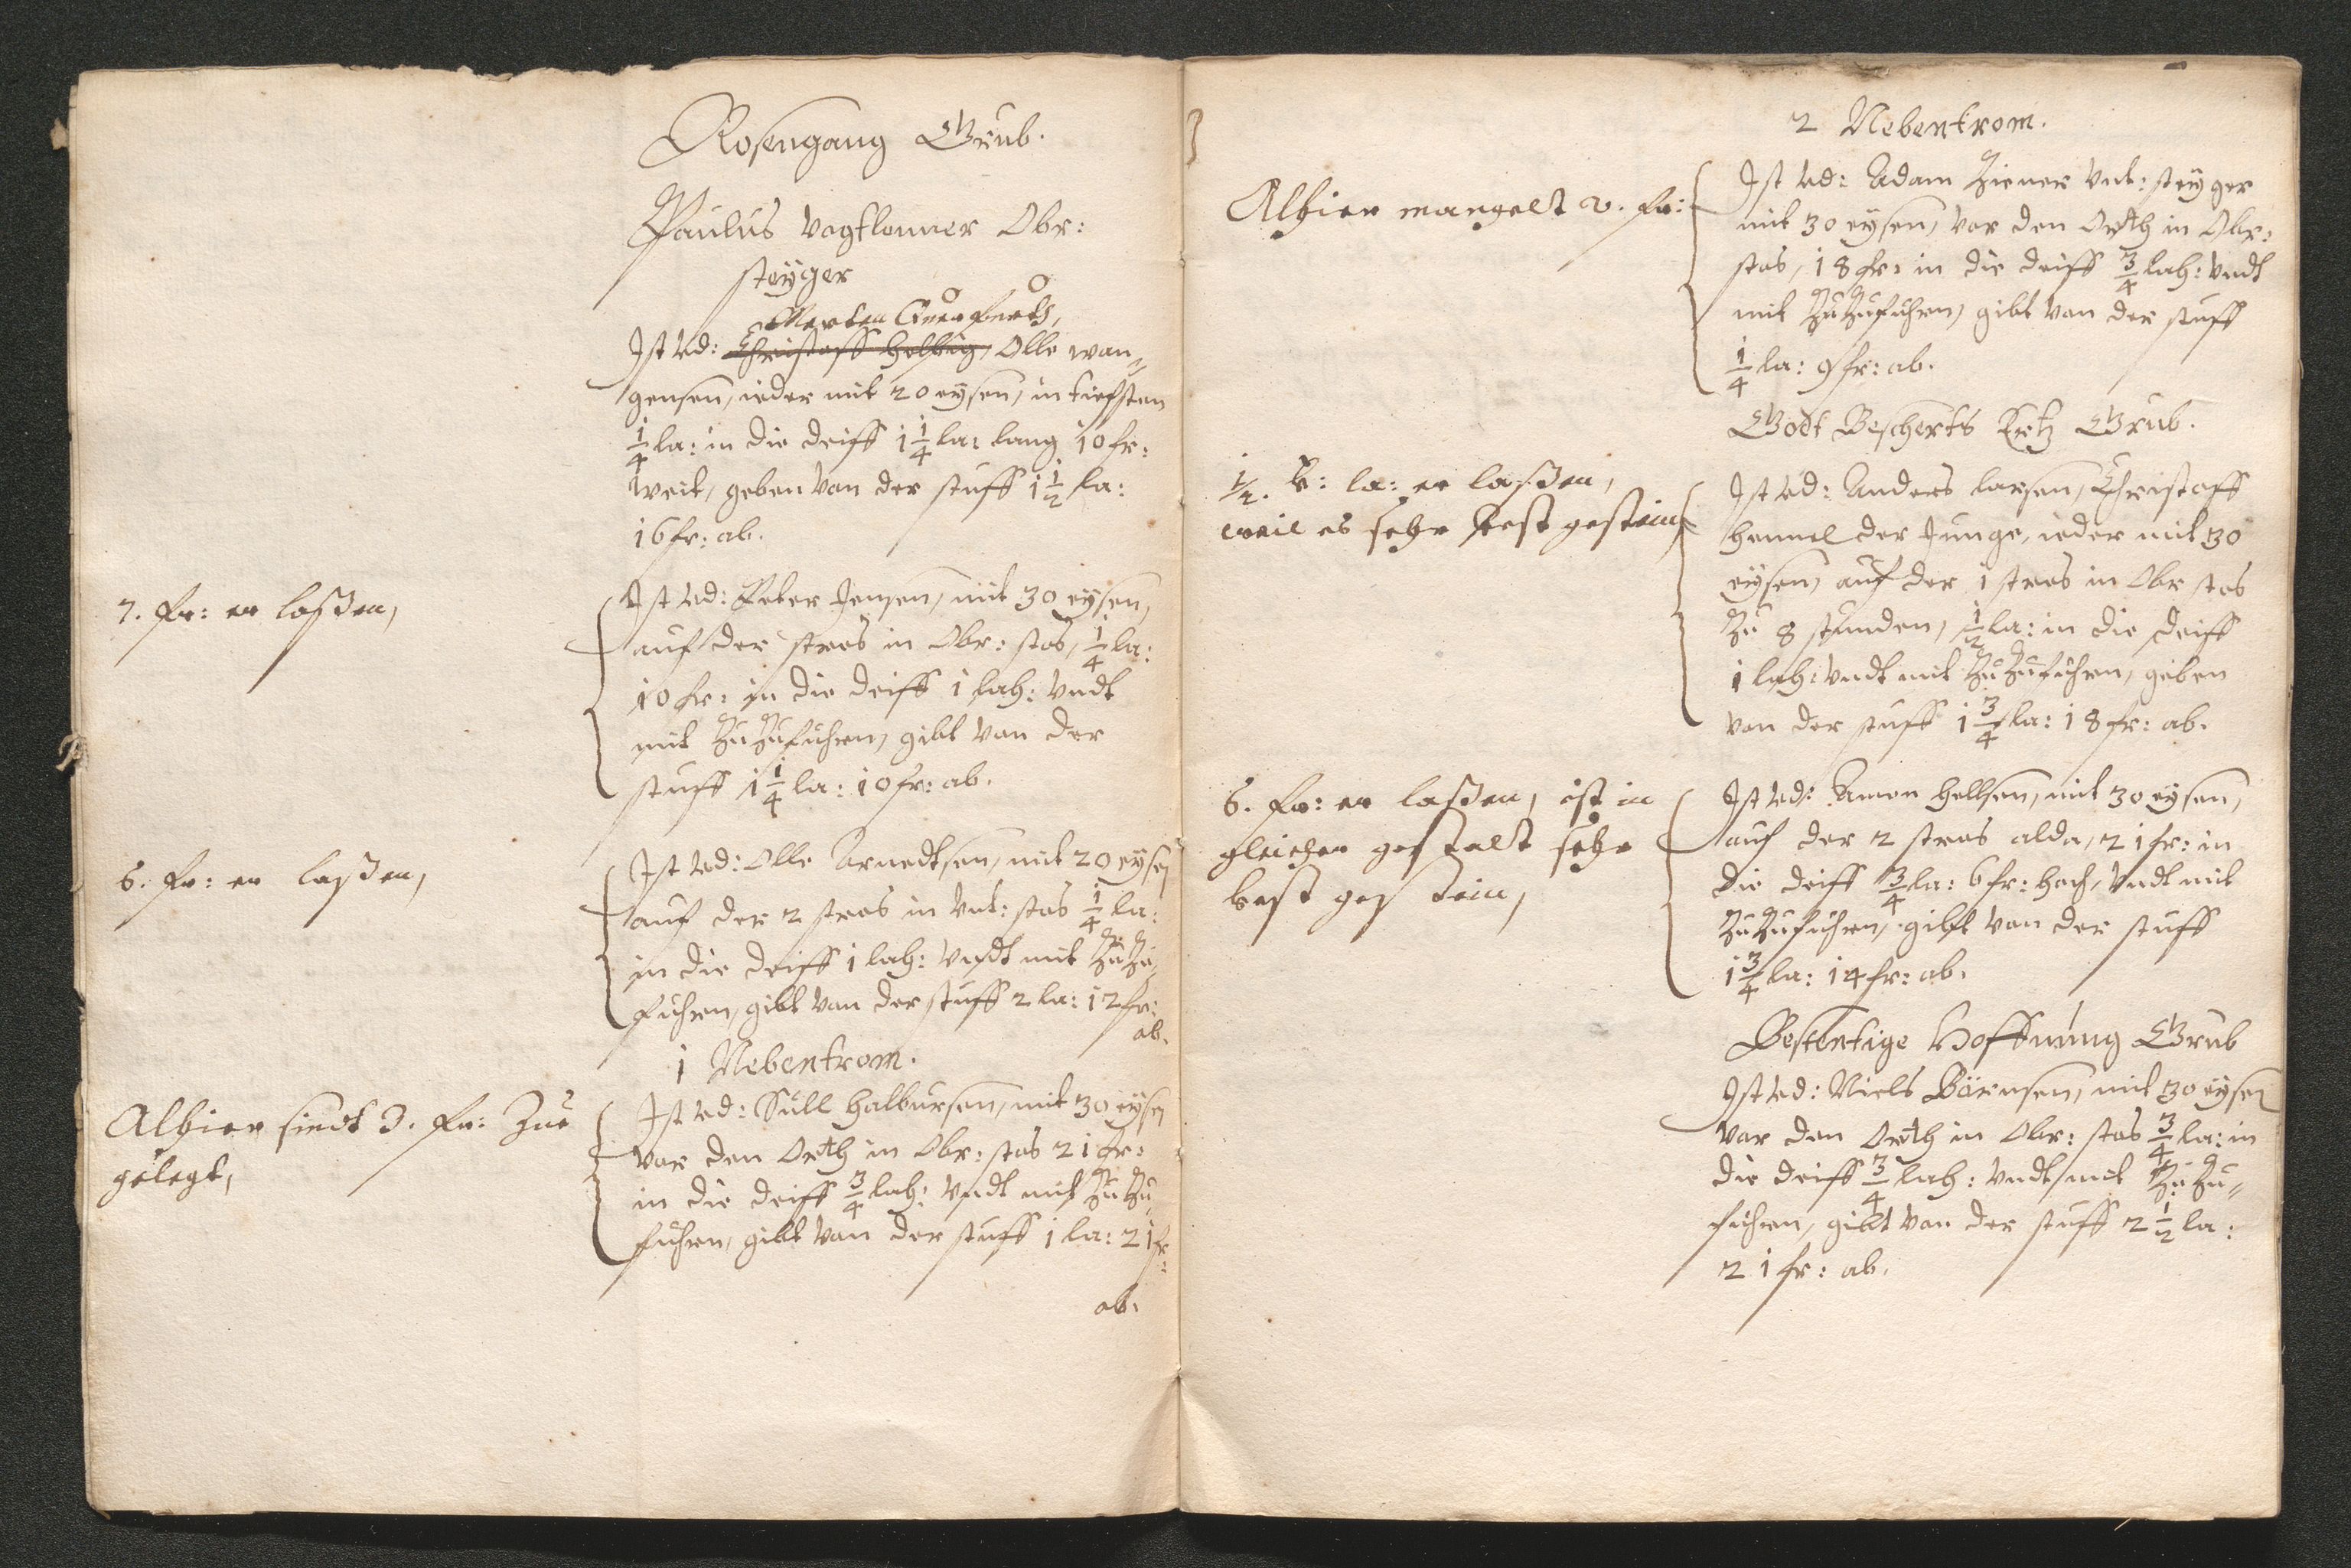 Rosengang Grub.
Paulus Vogtlenner Obr:
steyger
Merten Querfurts,
Ist ved: Christoff Helbig, Olle wan=
gensen, ieder mit 20 eysen, in tiefsten
1/4 la: in die deiff 1 1/4 la: lang 10 fr:
weit, geben van der stuff 1 1/2 la:
16 fr: ab.
7. fr: er laßen,
Ist ved: Peter Jensen, mit 30 eysen,
auf der stros in Obr: stos, 1/4 la:
10 fr: in die deiff 1 lah: vndt
mit Zu Zufuhren, gibt van der
stuff 1 1/4 la: 10 fr: ab.
6. fr: er laßen,
Ist ved: Olle Arnedtsen, mit 20 eysen
auf der 2 stros in vnt: stos 1/4 la:
in die deiff 1 lah: vndt mit Zu Zu
fuhren, gibt van der stuff 2 la: 12 fr:
ab.
1 Nebentrom.
Alhier sindt 3. fr: Zue
gelegt,
Ist ved: Sull Halbursen, mit 30 eysen
var den Orth in Obr: stos 21 fr:
in die deiff 3/4 lah: vndt mit Zu Zu
fuhren, gibt van der stuff 1 la: 21 fr:
ab.
2 Nebentrom.
Alhier mangelt 2. fr:
Ist ved: Adam Ziener vnt: steyger
mit 30 eysen, var den Orth in Obr:
stos, 18 fr: in die deiff 3/4 lah: vndt
mit Zu Zufuhren, gibt van der stuff
1/4 la: 9 fr: ab.
Godt Bescherts Ertz Grub.
1/2. la: er laßen,
weil es sehr fest gestein
Ist ved: Anders Larsen, Christoff
Hemmel der Junge, ieder mit 30
eysen, auf der 1 stros in Obr stos
Zu 8 stunden, 1/2 la: in die deiff
1 lah: vndt mit Zu Zufuhren, geben
van der stuff 1 3/4 la: 18 fr: ab.
6. fr: er laßen, ist in
gleicher gestalt sehr
fest gestein,
Ist ved: Amon Hellsen, mit 30 eysen,
auf der 2 stros alda, 21 fr: in
die deiff 3/4 la: 6 fr: hoch, vndt mit
Zu Zufuhren, gibt van der stuff
1 3/4 la: 14 fr: ab.
Bestentige Hoffnung Grub
Ist ved: Niels Börnsen, mit 30 eysen
var den Orth in Obr: stos 3/4 la: in
die deiff 3/4 lah: vndt mit Zu Zu=
fuhren, gibt van der stuff 2 1/2 la:
21 fr: ab.